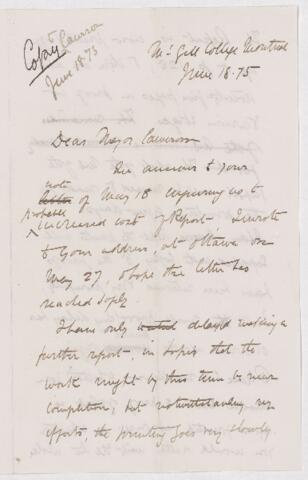 Copy to Cameron
June 18. 75
McGill College Montreal
June 18. 75
Dear Major Cameron
In answer to yours
note
letter of May 18 enquiring as to
probable
increased cost of Report I wrote
to your address at Ottawa on
May 27, & hope the letter has
reached safely.
I have only waited delayed making a
further report in hopes that the
work might by this time be near
completion, but notwithstanding my
efforts, the printing goes very slowly.